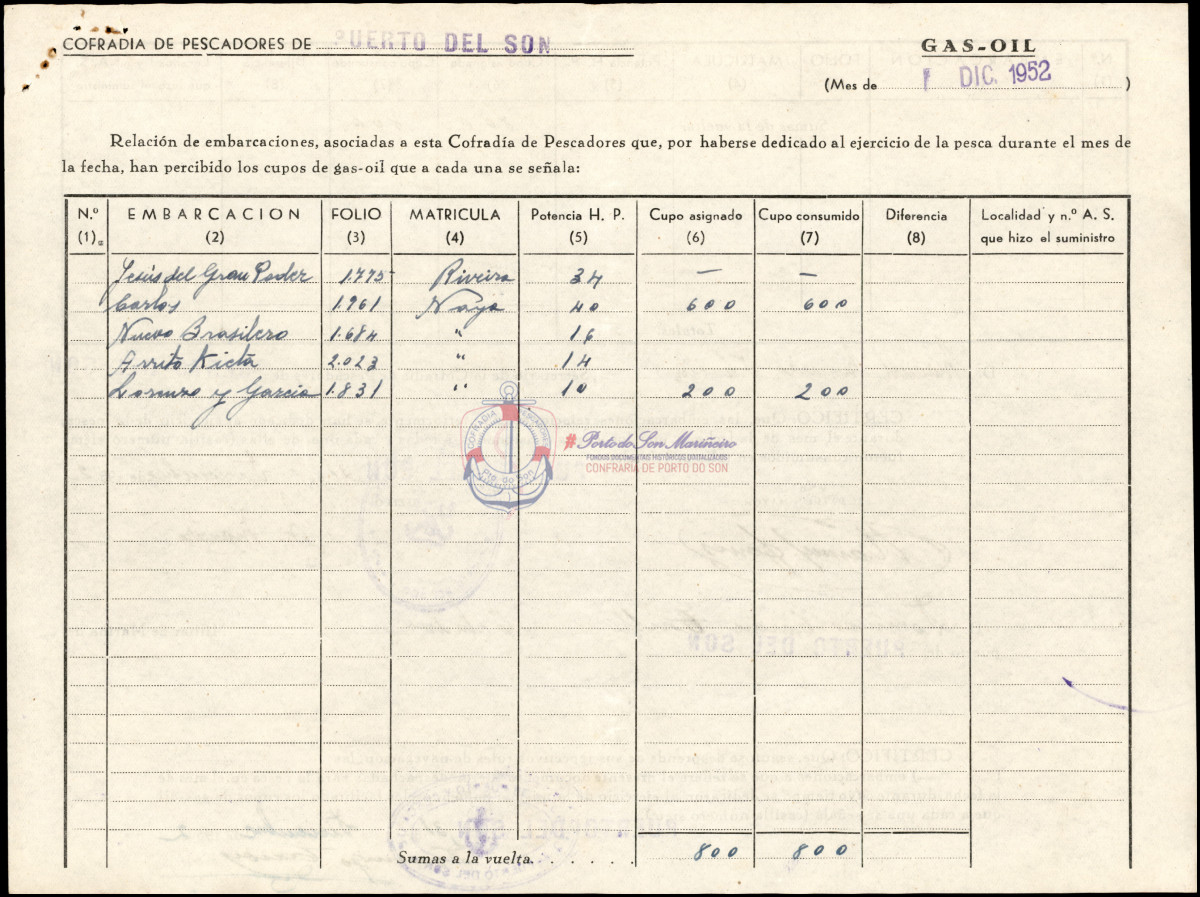 COFRADIA DE PESCADORES DE PUERTO DEL SON
GAS-OIL
(Mes de 1 DIC. 1952)
Relación de embarcaciones, asociadas a esta Cofradía de Pescadores que, por haberse dedicado al ejercicio de la pesca durante el mes de
la fecha, han percibido los cupos de gas-oil que a cada una se señala:
N.º EMBARCACION FOLIO MATRICULA Potencia H. P. Cupo asignado Cupo consumido Diferencia Localidad y n.º A. S.
(1) (2) (3) (4) (5) (6) (7) (8) que hizo el suministro
Jesús del Gran Poder 1.775 Riveira 34 — —
Carlos 1.961 Noya 40 600 600
Nuevo Brasilero 1.684 " 16
2.023 " 14
Lorenzo y Garcia 1.831 " 10 200 200
COFRADIA PESCADORES
Pto. do Son
#Porto do Son Mariñeiro
FONDOS DOCUMENTAIS HISTÓRICOS DIGITALIZADOS
CONFRARÍA DE PORTO DO SON
Sumas a la vuelta. . . . . . 800 800